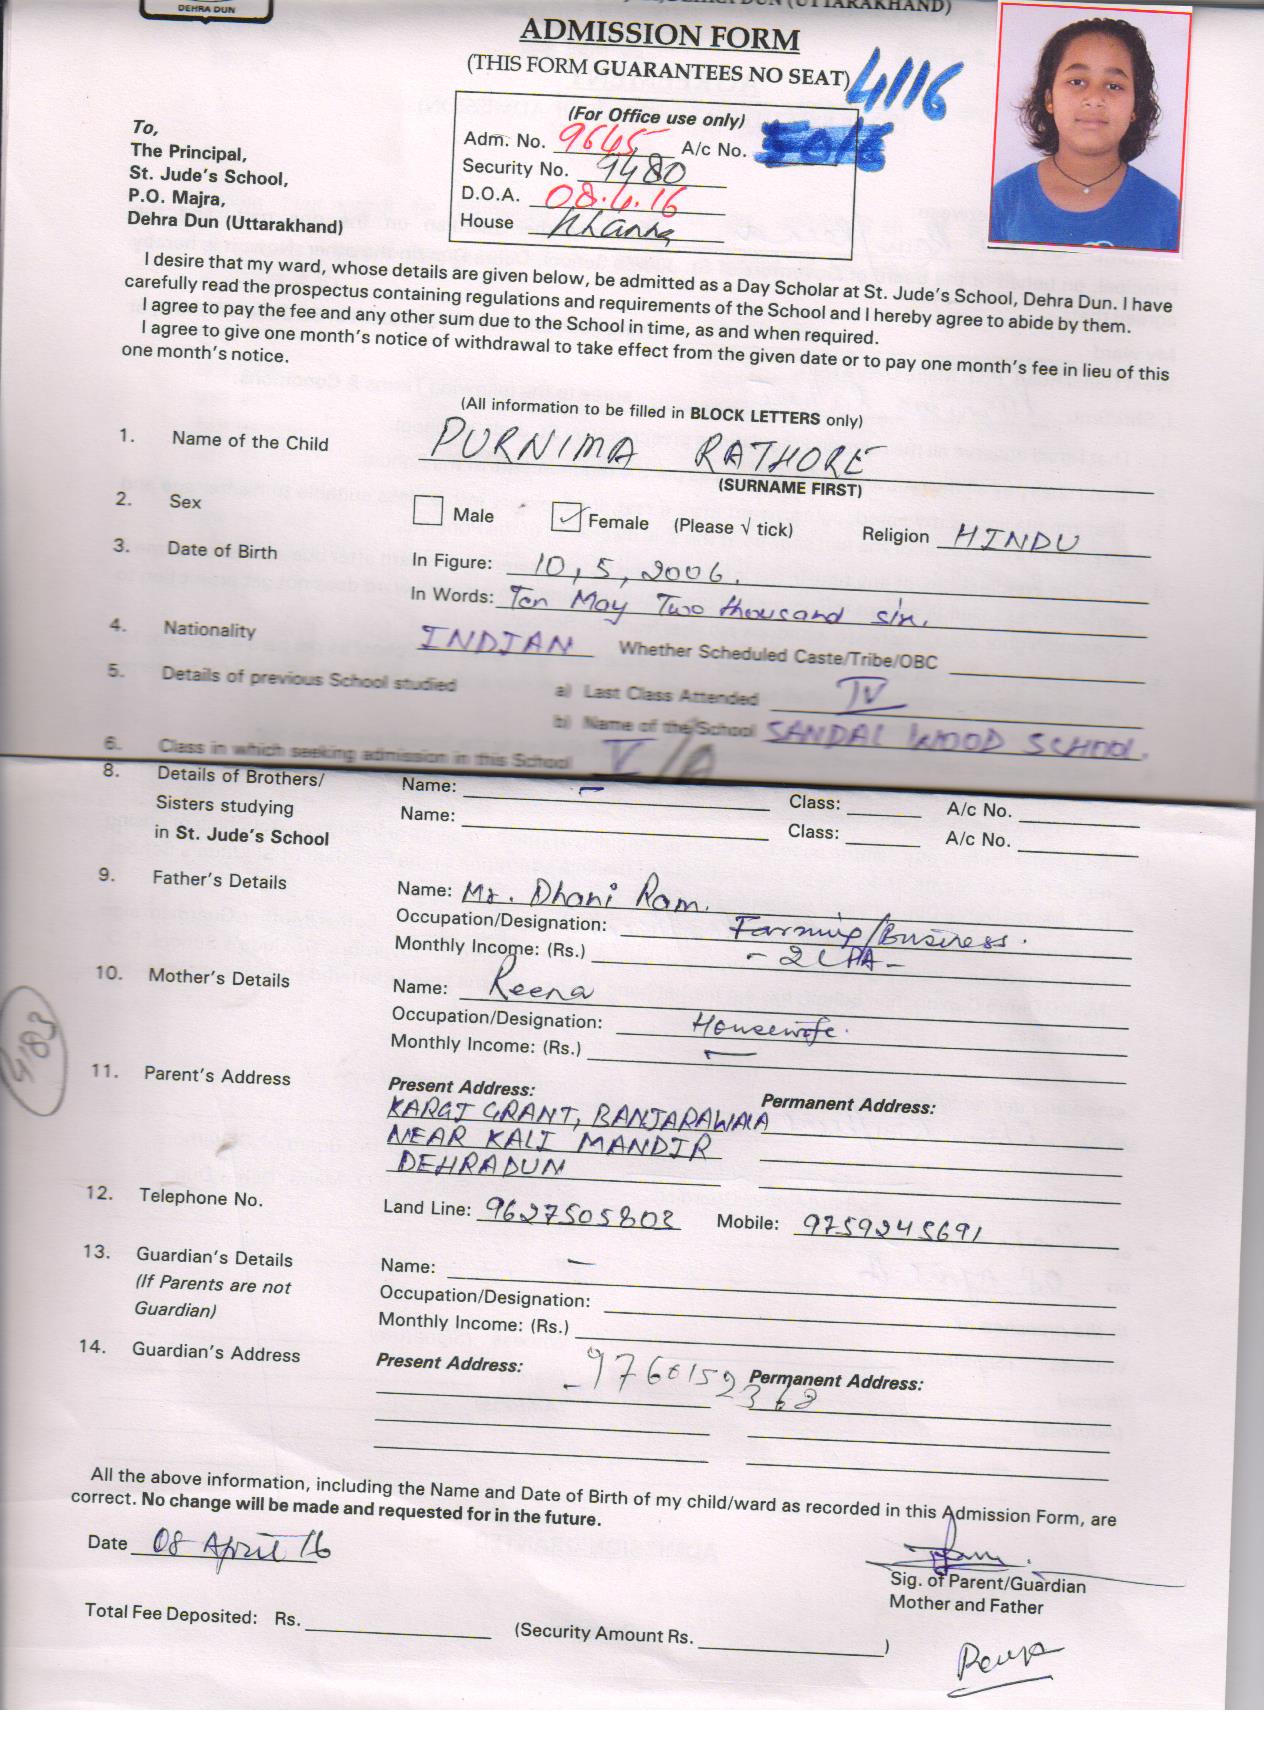 DEHRA DUN
DEHRA DUN (UTTARAKHAND)
ADMISSION FORM
(THIS FORM GUARANTEES NO SEAT)
4116
(For Office use only)
Adm. No. 9645 A/c No.
Security No. 9480
D.O.A. 08.4.16
House Khanna
To,
The Principal,
St. Jude's School,
P.O. Majra,
Dehra Dun (Uttarakhand)
I desire that my ward, whose details are given below, be admitted as a Day Scholar at St. Jude's School, Dehra Dun. I have
carefully read the prospectus containing regulations and requirements of the School and I hereby agree to abide by them.
I agree to pay the fee and any other sum due to the School in time, as and when required.
I agree to give one month's notice of withdrawal to take effect from the given date or to pay one month's fee in lieu of this
one month's notice.
(All information to be filled in BLOCK LETTERS only)
1. Name of the Child PURNIMA RATHORE
(SURNAME FIRST)
2. Sex Male Female (Please √ tick) Religion HINDU
3. Date of Birth In Figure: 10, 5, 2006.
In Words: Ten May Two thousand six.
4. Nationality INDIAN Whether Scheduled Caste/Tribe/OBC
5. Details of previous School studied a) Last Class Attended IV
b) Name of the School SANDAL WOOD SCHOOL.
6. Class in which seeking admission in this School V/A
8. Details of Brothers/ Name: Class: A/c No.
Sisters studying Name: Class: A/c No.
in St. Jude's School
9. Father's Details Name: Mr. Dhani Ram.
Occupation/Designation: Farming/Business.
Monthly Income: (Rs.) - 2 LPA -
10. Mother's Details Name: Reena
Occupation/Designation: Housewife.
Monthly Income: (Rs.) -
4183
11. Parent's Address Present Address: Permanent Address:
KARGI GRANT, BANJARAWALA
NEAR KALI MANDIR
DEHRADUN
12. Telephone No. Land Line: 9627505803 Mobile: 9759245691
13. Guardian's Details Name: -
(If Parents are not Occupation/Designation:
Guardian) Monthly Income: (Rs.)
14. Guardian's Address Present Address: Permanent Address:
9760152368
All the above information, including the Name and Date of Birth of my child/ward as recorded in this Admission Form, are
correct. No change will be made and requested for in the future.
Date 08 April 16
Sig. of Parent/Guardian
Mother and Father
Total Fee Deposited: Rs. (Security Amount Rs. )